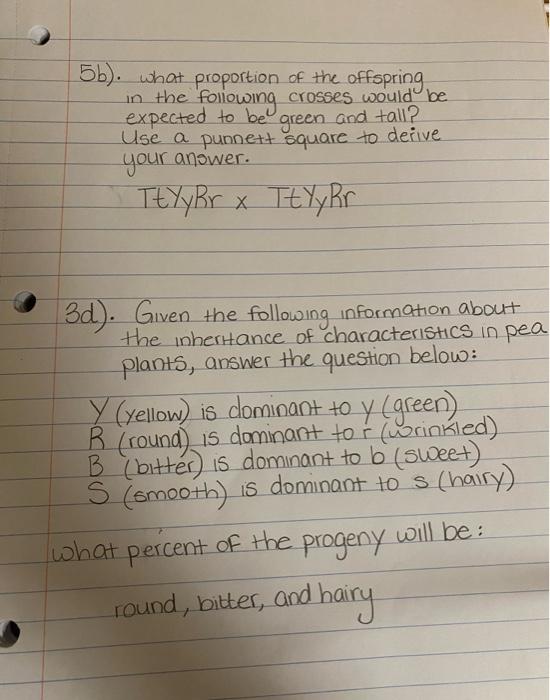 5b). what proportion of the offspring
in the following crosses would be
expected to be green and tall?
Use a punnett square to derive
your answer.
TtYyRr x TtYyRr
3d). Given the following information about
the inheritance of characteristics in pea
plants, answer the question below:
Y (yellow) is dominant to y (green)
R (round) is dominant to r (wrinkled)
B (bitter) is dominant to b (sweet)
S (smooth) is dominant to s (hairy)
what percent of the progeny will be:
round, bitter, and hairy